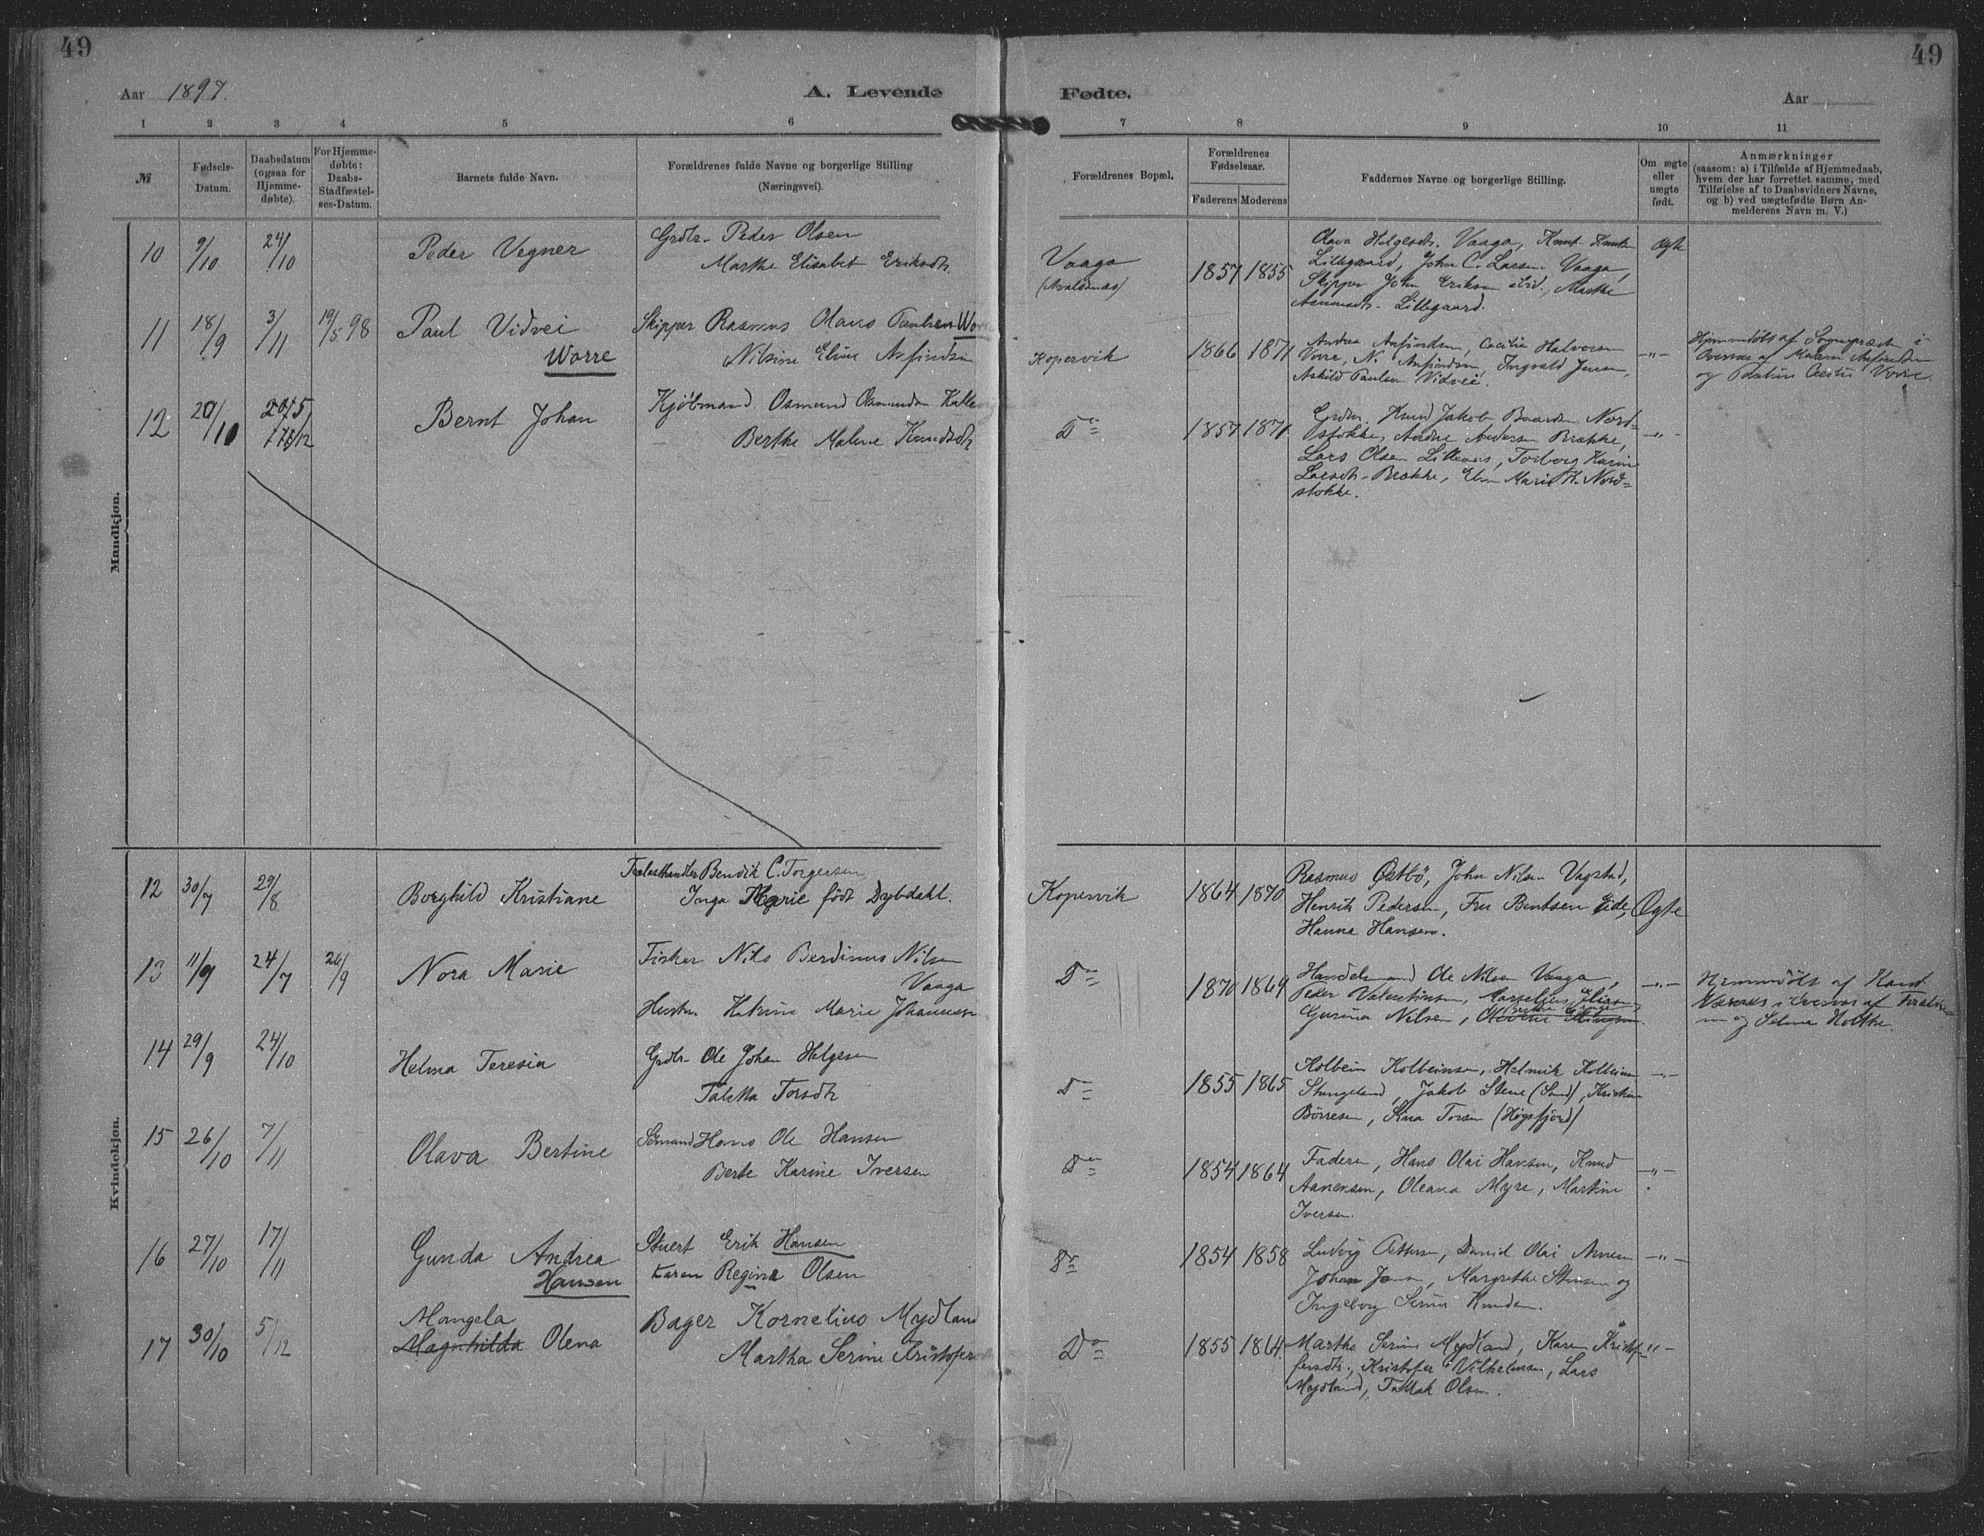 49
49
Aar 1897.
A. Levende
Fødte.
Aar
1 2 3 4 5 6 7 8 9 10 11
№
Fødsels-
Datum.
Daabsdatum
(ogsaa for
Hjemme-
døbte).
For Hjemme-
døbte:
Daabs-
Stadfæstel-
ses-Datum.
Barnets fulde Navn.
Forældrenes fulde Navne og borgerlige Stilling
(Næringsvei).
Forældrenes Bopæl.
Forældrenes
Fødselsaar.
Faderens Moderens
Faddernes Navne og borgerlige Stilling.
Om ægte
eller
uægte
født.
Anmærkninger
(saasom: a) i Tilfælde af Hjemmedaab,
hvem der har forrettet samme, med
Tilføielse af to Daabsvidners Navne,
og b) ved uægtefødte Børn An-
melderens Navn m. V.)
Mandkjøn.
10 9/10 24/10 Peder Vegner
Grdbr. Peder Olsen
Marthe Elisabet Eriksdtr.
Vaaga
(Avaldsnæs)
1857 1855
Olava Helgesdtr. Vaaga, Knut
Lillegaard, John C. Larsen Vaaga,
Skipper John Eriksen ibid., Marthe
Lillegaard.
Ægte
11 18/9 3/11 19/5 98 Paul Vidvei
Worre
Skipper Rasmus Olaus Paulsen
Nilsine Eline Anfindsen
Kopervik
1866 1871
Andrea Anfindsen, Cecilie Halvorsen
Vorre, N. Anfindsen, Ingvald Jensen,
Askild Paulsen Vidvei.
-"-
Hjemmedøbt af Sognepræst i
af Anfindsen
og Vorre.
12 20/10 Bernt Johan
Kjøbmand Osmund Osmundsen
Berthe Malene Knudsdtr.
Do
1857 1871
Grdbr. Knud Jakob Nord-
stokke, Andersen Brække,
Lars Olsen Lillenes, Torborg Karine
Larsdtr. Brække, Marie Nord-
stokke.
-"-
Kvindekjøn.
12 30/7 29/8 Borghild Kristiane
Trælasthandler Bendik C. Torgersen
Inga Marie født Dybdahl.
Kopervik
1864 1870
Rasmus Østbø, John Nilsen Vagstad,
Henrik Pedersen, Fru Bentsen Eide,
Hanna Hansen.
Ægte
13 11/9 24/7 26/9 Nora Marie
Fisker Nils Berdinus Nilsen
Vaaga
Hustru Katrine Marie Johannessen
Do
1870 1869
Handelsmand Ole Nilsen Vaaga,
Peder Valentinsen, Marselius Eliassen
Gurina Nilsen,
-"-
Hjemmedøbt af
i af
og Selma Holthe.
14 29/9 24/10 Helma Teresia
Grdbr. Ole Johan Helgesen
Talette Torsdtr.
Do
1855 1865
Kolbein Kolbeinsen, Helmik Kolbeinsen
Stangeland, Jakob Stene (Sand), Kristian
Børresen, Torsen (Høgsfjord)
-"-
15 26/10 7/11 Olava Bertine
Sømand Hans Ole Hansen
Berte Karine Iversen
Do
1854 1864
Faderen, Hans Olai Hansen, Knud
Aanensen, Oleana Myre, Martine
Iversen.
-"-
16 27/10 17/11 Gunda Andrea
Hansen
Stuert Erik Hansen
Karen Regine Olsen
Do
1854 1858
Ludvig Pettersen, David Olai
Johan Jensen, Margrethe og
Ingeborg Serine Knudsen.
-"-
17 30/10 5/12 Mangela
Magnhilda Olena
Bager Kornelius Mydland
Martha Serine Kristofersdtr.
Do
1855 1864.
Martha Serine Mydland, Karen Kristof-
fersdtr., Kristofer Vilhelmsen, Lars
Mydland, Tallak Olsen.
-"-